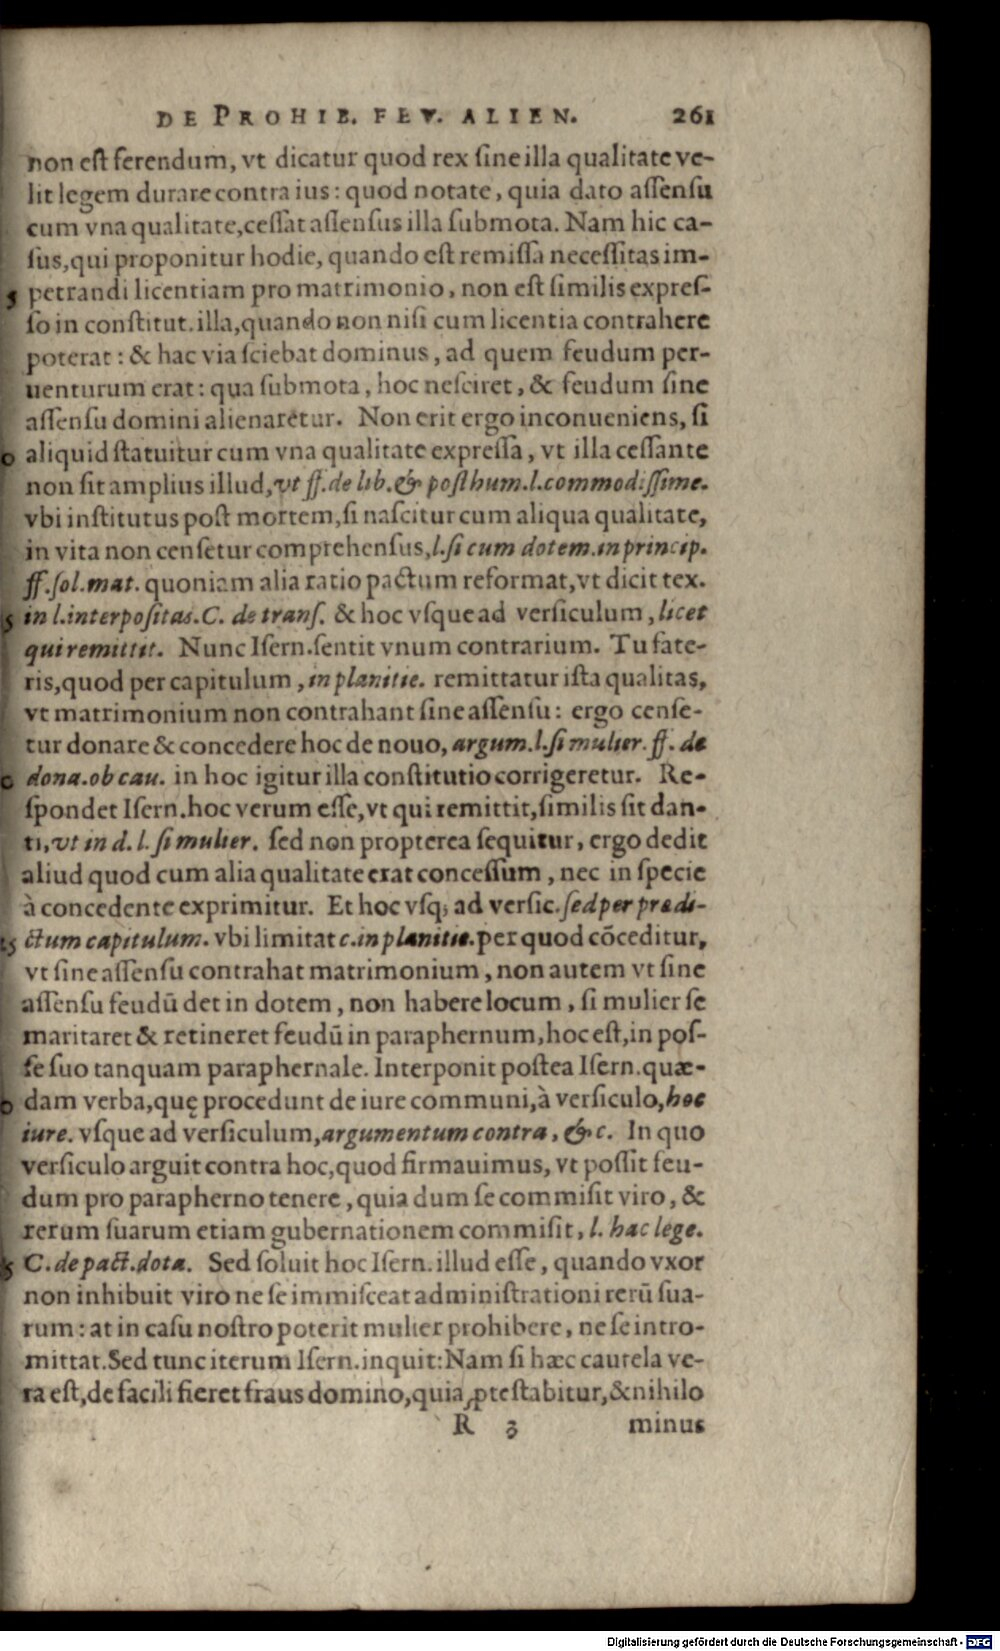 DE PROHIB. FEV. ALIEN. 261
non est ferendum, vt dicatur quod rex sine illa qualitate ve-
lit legem durare contra ius: quod notate, quia dato assensu
cum vna qualitate, cessat assensus illa submota. Nam hic ca-
sus, qui proponitur hodie, quando est remissa necessitas im-
5 petrandi licentiam pro matrimonio, non est similis expres-
so in constitut. illa, quando non nisi cum licentia contrahere
poterat: & hac via sciebat dominus, ad quem feudum per-
uenturum erat: qua submota, hoc nesciret, & feudum sine
assensu domini alienaretur. Non erit ergo inconueniens, si
0 aliquid statuitur cum vna qualitate expressa, vt illa cessante
non sit amplius illud, vt ff. de lib. & posthum. l. commodissime.
vbi institutus post mortem, si nascitur cum aliqua qualitate,
in vita non censetur comprehensus, l. si cum dotem. in princip.
ff. sol. mat. quoniam alia ratio pactum reformat, vt dicit tex.
5 in l. interpositas. C. de trans. & hoc vsque ad versiculum, licet
qui remittit. Nunc Isern. sentit vnum contrarium. Tu fate-
ris, quod per capitulum, in planitie. remittatur ista qualitas,
vt matrimonium non contrahant sine assensu: ergo cense-
tur donare & concedere hoc de nouo, argum. l. si mulier. ff. de
0 dona. ob cau. in hoc igitur illa constitutio corrigeretur. Re-
spondet Isern. hoc verum esse, vt qui remittit, similis sit dan-
ti, vt in d. l. si mulier. sed non propterea sequitur, ergo dedit
aliud quod cum alia qualitate erat concessum, nec in specie
à concedente exprimitur. Et hoc vsq; ad versic. sed per prædi-
25 ctum capitulum. vbi limitat c. in planitie. per quod cōceditur,
vt sine assensu contrahat matrimonium, non autem vt sine
assensu feudū det in dotem, non habere locum, si mulier se
maritaret & retineret feudū in paraphernum, hoc est, in pos-
se suo tanquam paraphernale. Interponit postea Isern. quæ-
0 dam verba, quę procedunt de iure communi, à versiculo, hoc
iure. vsque ad versiculum, argumentum contra, &c. In quo
versiculo arguit contra hoc, quod firmauimus, vt possit feu-
dum pro parapherno tenere, quia dum se commisit viro, &
rerum suarum etiam gubernationem commisit, l. hac lege.
5 C. de pact. dota. Sed soluit hoc Isern. illud esse, quando vxor
non inhibuit viro ne se immisceat administrationi rerū sua-
rum: at in casu nostro poterit mulier prohibere, ne se intro-
mittat. Sed tunc iterum Isern. inquit: Nam si hæc cautela ve-
ra est, de facili fieret fraus domino, quia ꝓtestabitur, & nihilo
R 3 minus
Digitalisierung gefördert durch die Deutsche Forschungsgemeinschaft - DFG